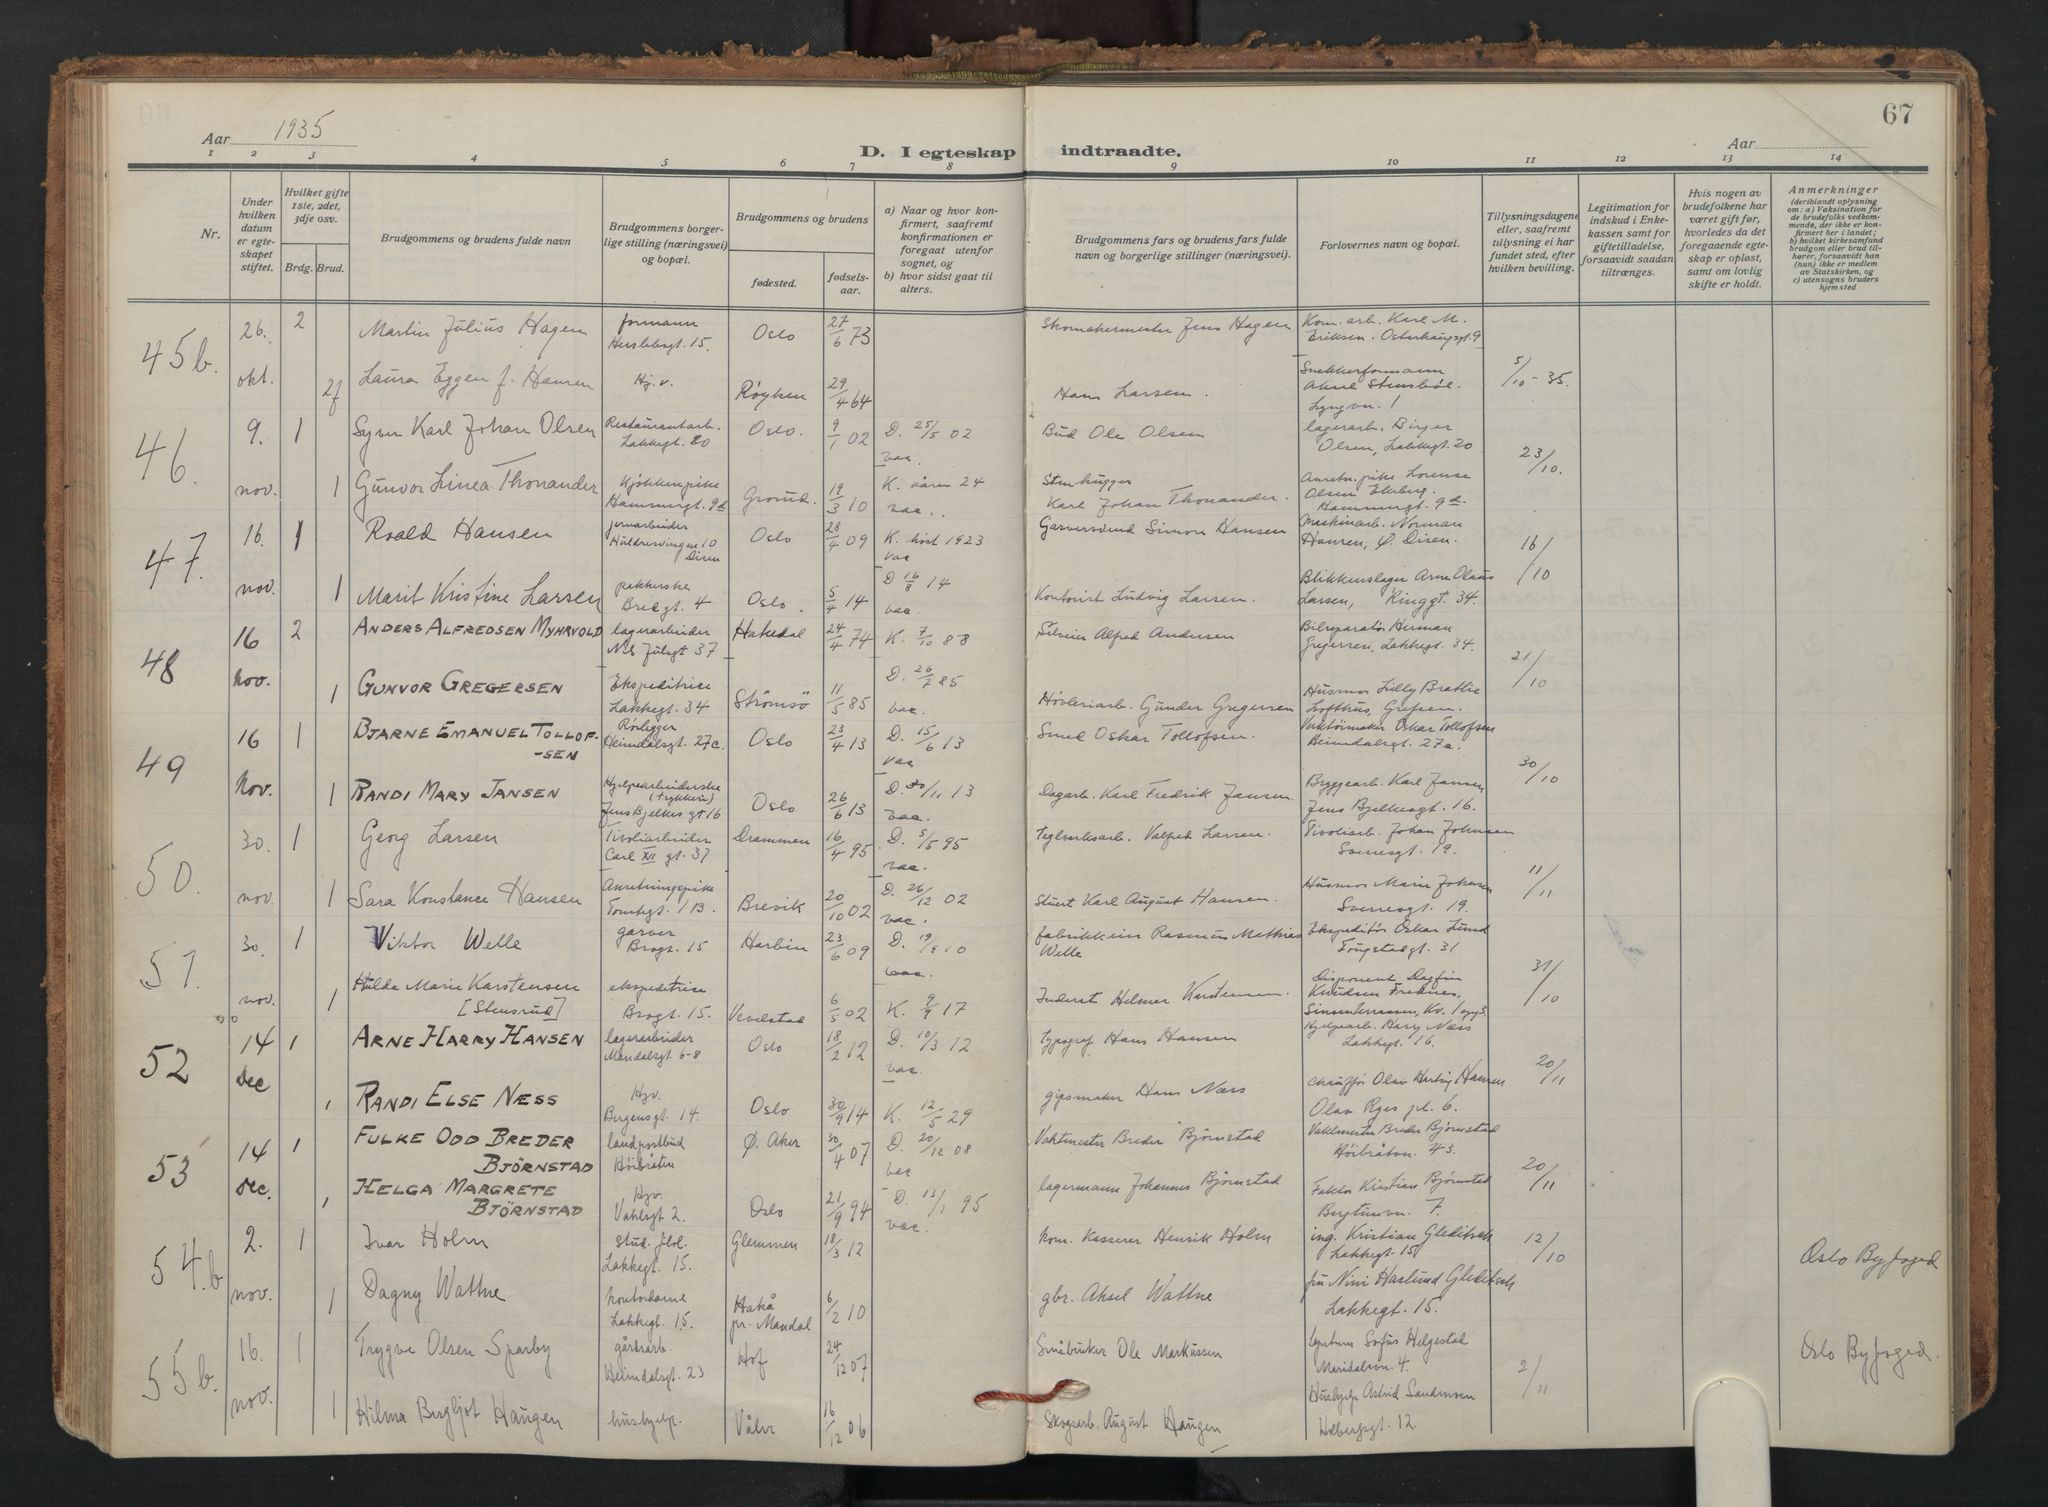 67
Aar 1935
Aar
D. I egteskap indtraadte.
1 2 3 4 5 6 7 8 9 10 11 12 13 14
Nr.
Under hvilken datum er egteskapet stiftet.
Hvilket gifte 1ste, 2det, 3dje osv.
Brdg. Brud.
Brudgommens og brudens fulde navn
Brudgommens borgerlige stilling (næringsvei) og bopæl.
Brudgommens og brudens
fødested.
fødselsaar.
a) Naar og hvor konfirmert, saafremt konfirmationen er foregaat utenfor sognet, og
b) hvor sidst gaat til alters.
Brudgommens fars og brudens fars fulde navn og borgerlige stillinger (næringsvei).
Forlovernes navn og bopæl.
Tillysningsdagene eller, saafremt tillysning ei har fundet sted, efter hvilken bevilling.
Legitimation for indskud i Enkekassen samt for giftetilladelse, forsaavidt saadan tiltrænges.
Hvis nogen av brudefolkene har været gift før, hvorledes da det foregaaende egteskap er opløst, samt om lovlig skifte er holdt.
Anmerkninger
(deriblandt oplysning om: a) Vaksination for de brudefolks vedkommende, der ikke er konfirmert her i landet; b) hvilket kirkesamfund brudgom eller brud tilhører, forsaavidt han (hun) ikke er medlem av Statskirken, og c) utensogns bruders hjemsted
45b. 26. okt. 2 Martin Julius Hagen formann Herslebsgt. 15. Oslo 27/6 73 Skomakermester Jens Hagen Kom. arb. Karl M. Eriksen. Osterhausgt. 9
2 f Laura Eggen f. Hansen Hj. v. Røyken 29/4 64 Hans Larsen. Snekkerformann Aksel Stensbøl. Lyngvn. 1 5/10-35.
46. 9. nov. 1 Syver Karl Johan Olsen Restaurantarb. Lakkegt. 20 Oslo. 9/1 02 D. 25/5 02 vac. Bud Ole Olsen lagerarb. Birger Olsen, Lakkegt. 20 23/10.
1 Gunvor Linea Thonander Kjøkkenpike Hammergt. 9d Grorud. 19/3 10 K. våren 24 vac. Stenhugger Karl Johan Thonander. Anretn. pike Lorense Olsen Ekeberg. Hammergt. 9d.
47. 16. nov. 1 Roald Hansen jernarbeider Huldresvingen 10 Disen Oslo 28/4 09 K. høst 1923 vac Garversvend Simon Hansen Maskinarb. Norman Hansen, Ø. Disen. 16/10
1 Marit Kristine Larsen pakkerske Bredgt. 4 Oslo. 5/4 14 D 16/8 14 vac. Kontorist Ludvig Larsen. Blikkenslager Arne Olaus Larsen, Ringgt. 34.
48 16 Nov. 2 ANDERS ALFREDSEN MYHRVOLD lagerarbeider Nils Julsgt 37 Hakedal 24/4 74 K. 7/10 88 Alfred Andersen Bilreparatør Herman Gregersen, Lakkegt. 34. 21/10
1 GUNVOR GREGERSEN Ekspeditrice Lakkegt. 34 Strømsø 11/5 85 D. 26/7 85 vac. Høvleriarb. Gunder Gregersen Husmor Lilly Brattlie Lofthus, Grefsen.
49 16 Nov. 1 BJARNE EMANUEL TOLLOF-SEN Rørlegger Heimdalsgt. 27c. Oslo 23/4 13 D. 15/6 13 vac Smed Oskar Tollofsen. Verktøimaker Oskar Tollofsen Heimdalsgt. 27a. 30/10
1 RANDI MARY JANSEN Hjelpearbeiderske (trykkeri) Jens Bjelkes gt 16 Oslo 26/6 13 D. 30/11 13 vac. Dagarb. Karl Fredrik Jansen. Bryggearb. Karl Jansen Jens Bjelkesgt. 16.
50. 30. nov. 1 Georg Larsen Tivoliarbeider Carl XII gt. 37 Drammen 16/4 95 D. 5/5 95 vac. Teglverksarb. Valfred Larsen. Tivoliarb. Johan Johnsen Sverresgt. 19. 11/11
1 Sara Konstance Hansen Anretningspike Tomtegt. 1 B. Brevik 20/10 02 D. 26/12 02 vac. Stuert Karl August Hansen. Husmor Marie Johnsen Sverresgt. 19.
51. 30. nov. 1 Viktor Welle garver Brogt. 15 Harbin 23/6 09 D. 19/9 10 vac. fabrikkeier Rasmus Mathias Welle Ekspeditør Oskar Lund Tougstadgt. 31 31/10
1 Hulda Marie Karstensen [Stensrud] ekspeditrise Brogt. 15. Vevelstad 6/5 02 K. 9/9 17 Inderst Helmer Karstensen. Disponent Dagfin Knudsen Frednes, Sinsenterrassen, Kv. 1 opg 3.
52 14 Dec 1 ARNE HARRY HANSEN lagerarbeider Mandalsgt. 6-8 Oslo 18/2 12 D. 10/3 12 vac. typograf Hans Hansen Hjelpearb. Harry Næss Lakkegt. 16. 20/11
1 RANDI ELSE NÆSS Hjv. Bergensgt. 14. Oslo 30/9 14 K. 12/5 29 gipsmaker Hans Næss chauffør Olav Hertvig Hansen Olav Ryes pl. 6.
53 14 Dec. 1 FULKE ODD BREDER BJÖRNSTAD landpostbud Høibråten Ø. Aker 30/4 07 D. 20/12 08 vac Vaktmester Breder Bjørnstad Vaktmester Breder Bjørnstad Høibråtvn. 43. 20/11
1 HELGA MARGRETE BJÖRNSTAD Hjv. Vahlsgt 2. Oslo 21/9 94 D. 13/1 95 vac. lagermann Johannes Bjørnstad Faktor Kristian Bjørnstad Bergtunvn. 7.
54.b 2. nov. 1 Ivar Holm stud. filol. Lakkegt. 15. Glemmen 18/3 12 kom. Kasserer Henrik Holm ing. Kristian Gleditsch Lakkegt. 15 12/10 Oslo Byfoged
1 Dagny Wattne kontordame Lakkegt. 15. Hakå pr. Mandal 6/2 10 gbr. Aksel Wattne fru Nini Haslund Gleditsch Lakkegt. 15.
55b. 16. nov. 1 Trygve Olsen Sparby gårdsarb. Heimdalsgt. 23 Hof 24/12 07 Småbruker Ole Markussen Sofus Helgestad Maridalsvn. 4. 2/11 Oslo Byfoged.
1 Hilma Bergljot Haugen hushjelp. Våler 16/12 06 Skogsarb. August Haugen Hushjelp Astrid Sandmoen Holbergsgt. 12.